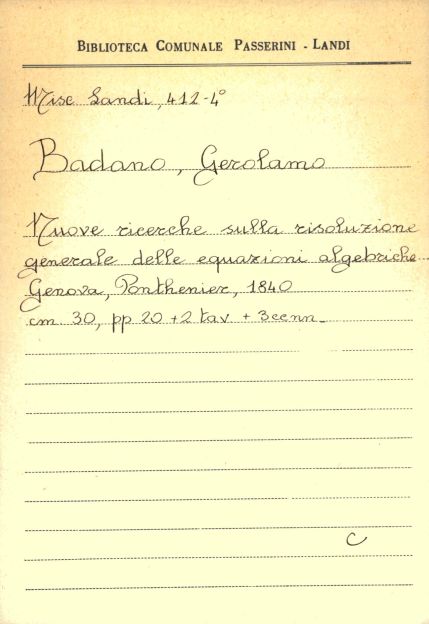 BIBLIOTECA COMUNALE PASSERINI - LANDI
Misc Landi, 412-4°
Badano, Gerolamo
Nuove ricerche sulla risoluzione
generale delle equazioni algebriche
Genova, Ponthenier, 1840
cm. 30, pp 20 + 2 tav + 3 cenn.
C